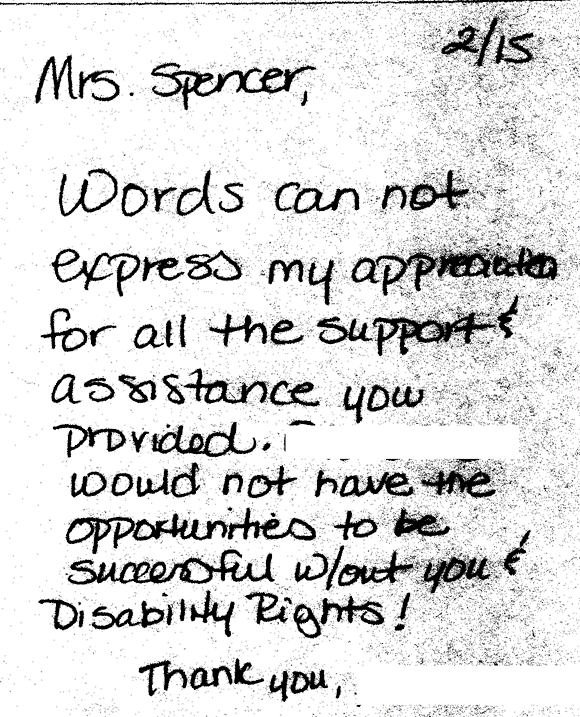 2/15
Mrs. Spencer,
Words can not
express my appreciation
for all the support &
assistance you
provided.
would not have the
opportunities to be
successful w/out you &
Disability Rights!
Thank you,